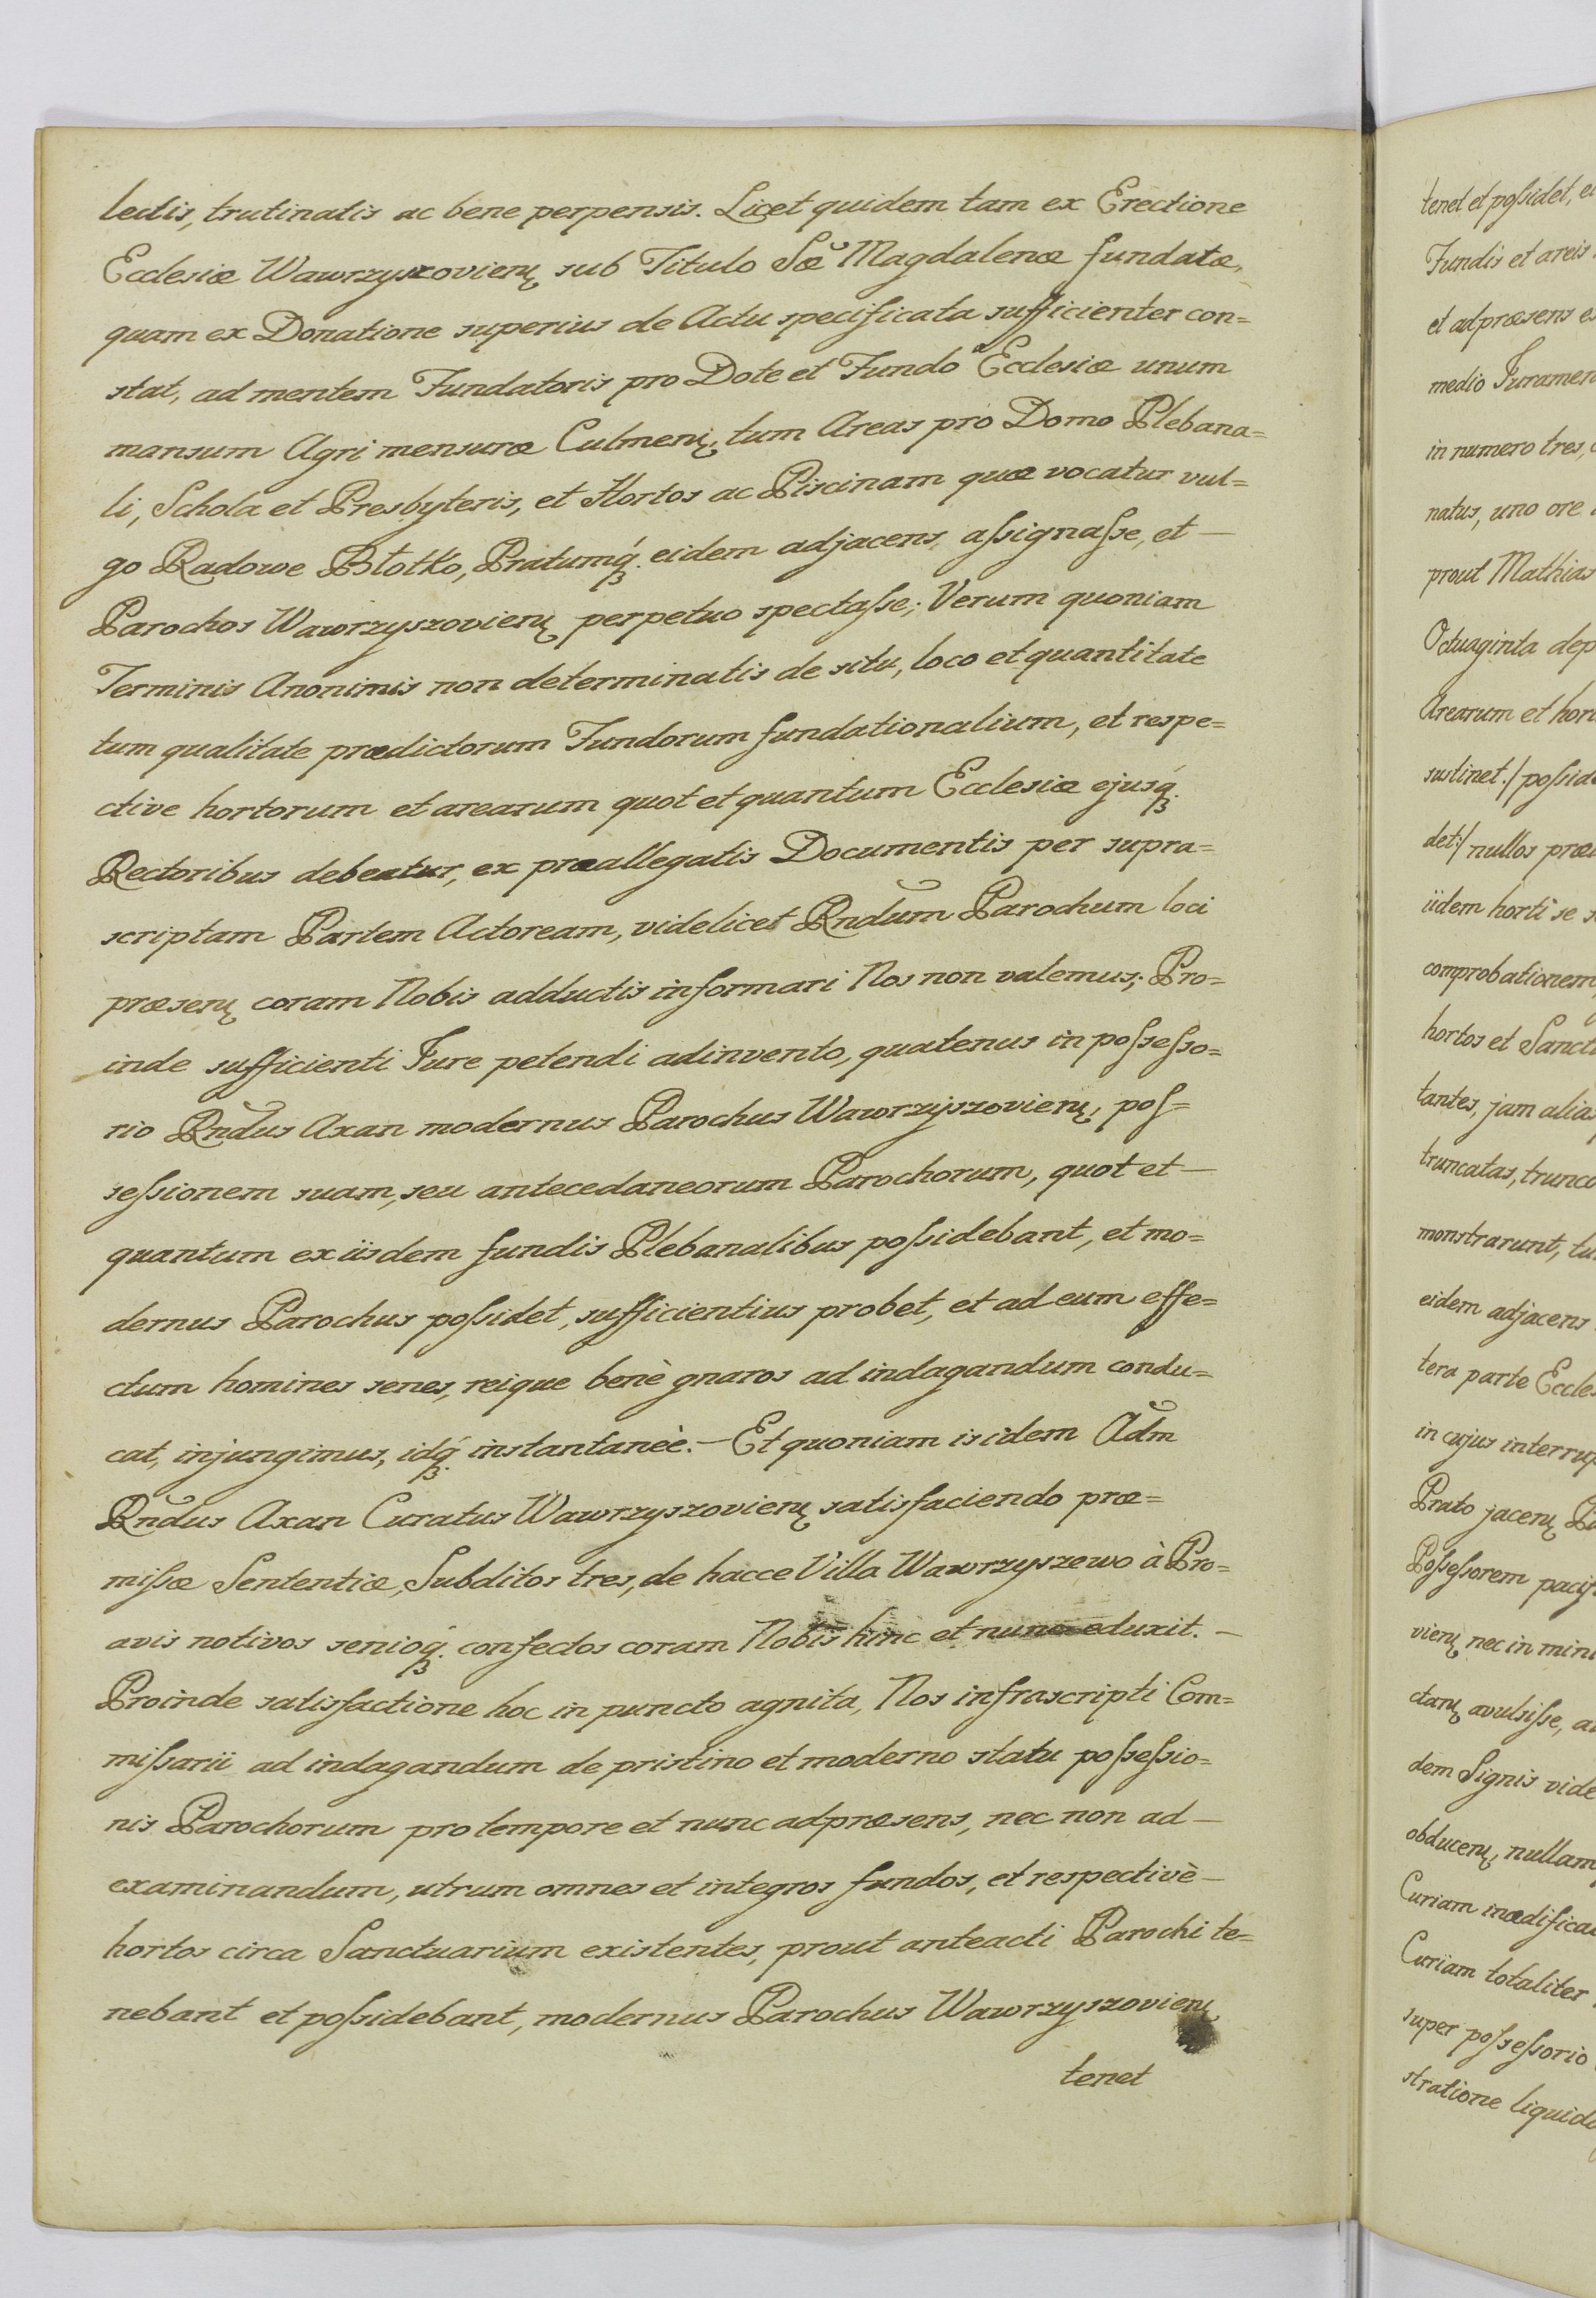 lectis, trutinatis ac bene perpensis. Licet quidem tam ex Erectione
Ecclesiæ Wawrzyszovien̄ sub Titulo Sæ Magdalenæ fundatæ,
quam ex Donatione superius de Actu specificata sufficienter con=
stat, ad mentem Fundatoris pro Dote et Fundo Ecclesiæ unum
mansum Agri mensuræ Culmen̄, tum Areas pro Domo Plebana=
li, Schola et Presbyteris, et Hortos ac Piscinam quæ vocatur vul=
go Radowe Błotko, Pratumq́. eidem adjacens, aſsignaſse, et —
Parochos Wawrzyszovien̄ perpetuo spectaſse; Verum quoniam
Terminis Anonimis non determinatis de situ, loco et quantitate
tum qualitate prædictorum Fundorum fundationalium, et respe=
ctive hortorum et arearum quot et quantum Ecclesiæ ejusq́.
Rectoribus debeatur, ex præallegatis Documentis per supra=
scriptam Partem Actoream, videlicet Rndum Parochum loci
præsen̄ coram Nobis adductis informari Nos non valemus; Pro=
inde sufficienti Jure petendi adinvento, quatenus in poſseſso=
rio Rndus Axan modernus Parochus Wawrzyszovien̄, poſ=
seſsionem suam, seu antecedaneorum Parochorum, quot et —
quantum ex iisdem fundis Plebanalibus poſsidebant, et mo=
dernus Parochus poſsidet, sufficientius probet, et ad eum effe=
ctum homines senes, reique benè gnaros ad indagandum condu=
cat, injungimus, idq́. instantaneè. — Et quoniam is idem Adm
Rndus Axan Curatus Wawrzyszovien̄ satisfaciendo præ=
miſsæ Sententiæ, Subditos tres, de hacce Villa Wawrzyszewo à Pro=
avis notivos senioq́. confectos coram Nobis hinc et nunc eduxit. —
Proinde satisfactione hoc in puncto agnita, Nos infrascripti Com=
miſsarii ad indagandum de pristino et moderno statu poſseſsio=
nis Parochorum pro tempore et nunc ad præsens, nec non ad —
examinandum, utrum omnes et integros fundos, et respectivè —
hortos circa Sanctuarium existentes, prout anteacti Parochi te=
nebant et poſsidebant, modernus Parochus Wawrzyszovien̄
tenet
tenet et poſsidet,
Fundis et areis
et ad præsens
medio
in numero tres,
natus, uno ore
prout Mathias
Octuaginta
Arearum et
sustinet./
det:/ nullos
iidem horti se
comprobationem
hortos et
tantes, jam
truncatas,
monstrarunt,
eidem adjacens
tera parte
in cujus
Prato jacen̄
Poſseſsorem
vien̄ nec in
ctan̄ avulsiſse,
dem Signis
obducen̄, nullam
Curiam
Curiam totaliter
super poſseſsorio
stratione